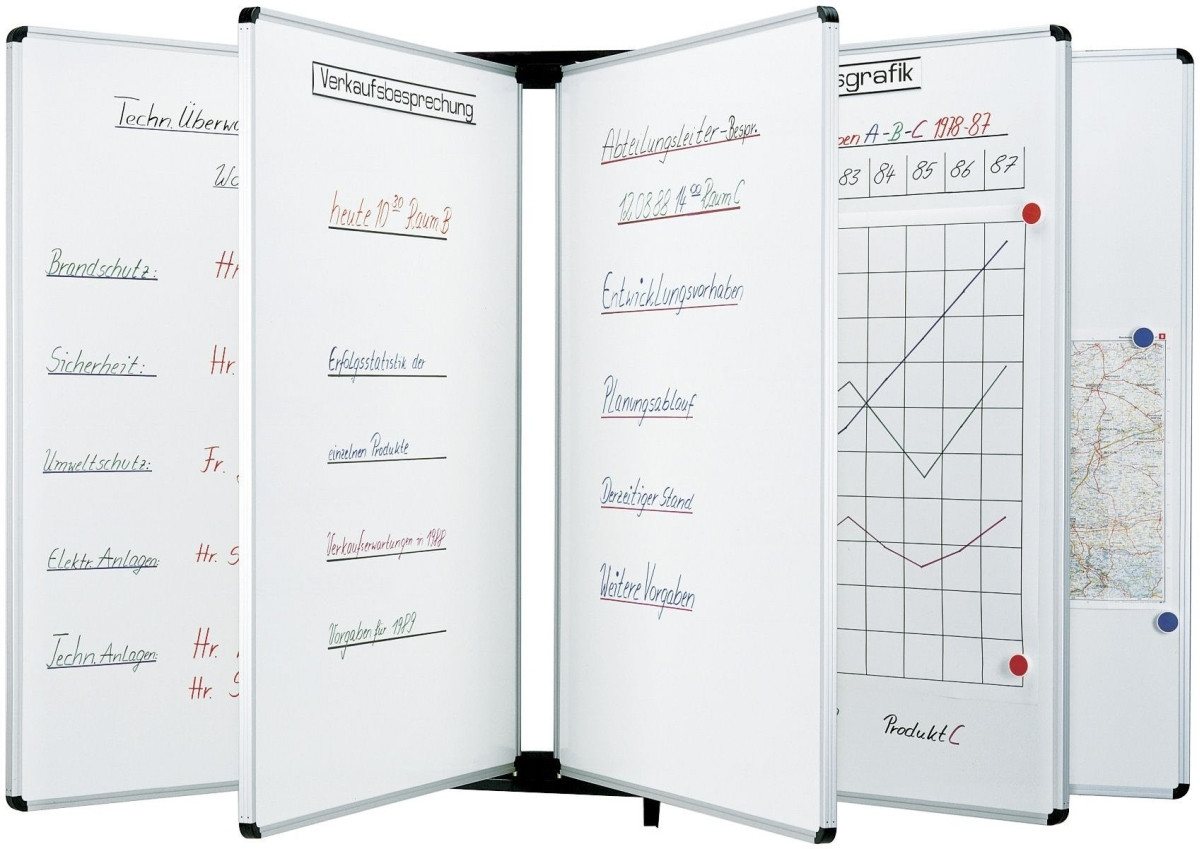 Techn. Überwa
Wa
Brandschutz: Hr.
Sicherheit: Hr.
Umweltschutz: Fr.
Elektr. Anlagen: Hr. S
Techn. Anlagen: Hr.
Hr. S
Verkaufsbesprechung
heute 10³⁰ Raum B
Erfolgsstatistik der
einzelnen Produkte
Verkaufserwartungen in 1988
Vorgaben für 1989
Abteilungsleiter-Bespr.
12.08.88 14⁰⁰ Raum C
Entwicklungsvorhaben
Planungsablauf
Derzeitiger Stand
Weitere Vorgaben
sgrafik
pen A-B-C 1978-87
83 84 85 86 87
Produkt C